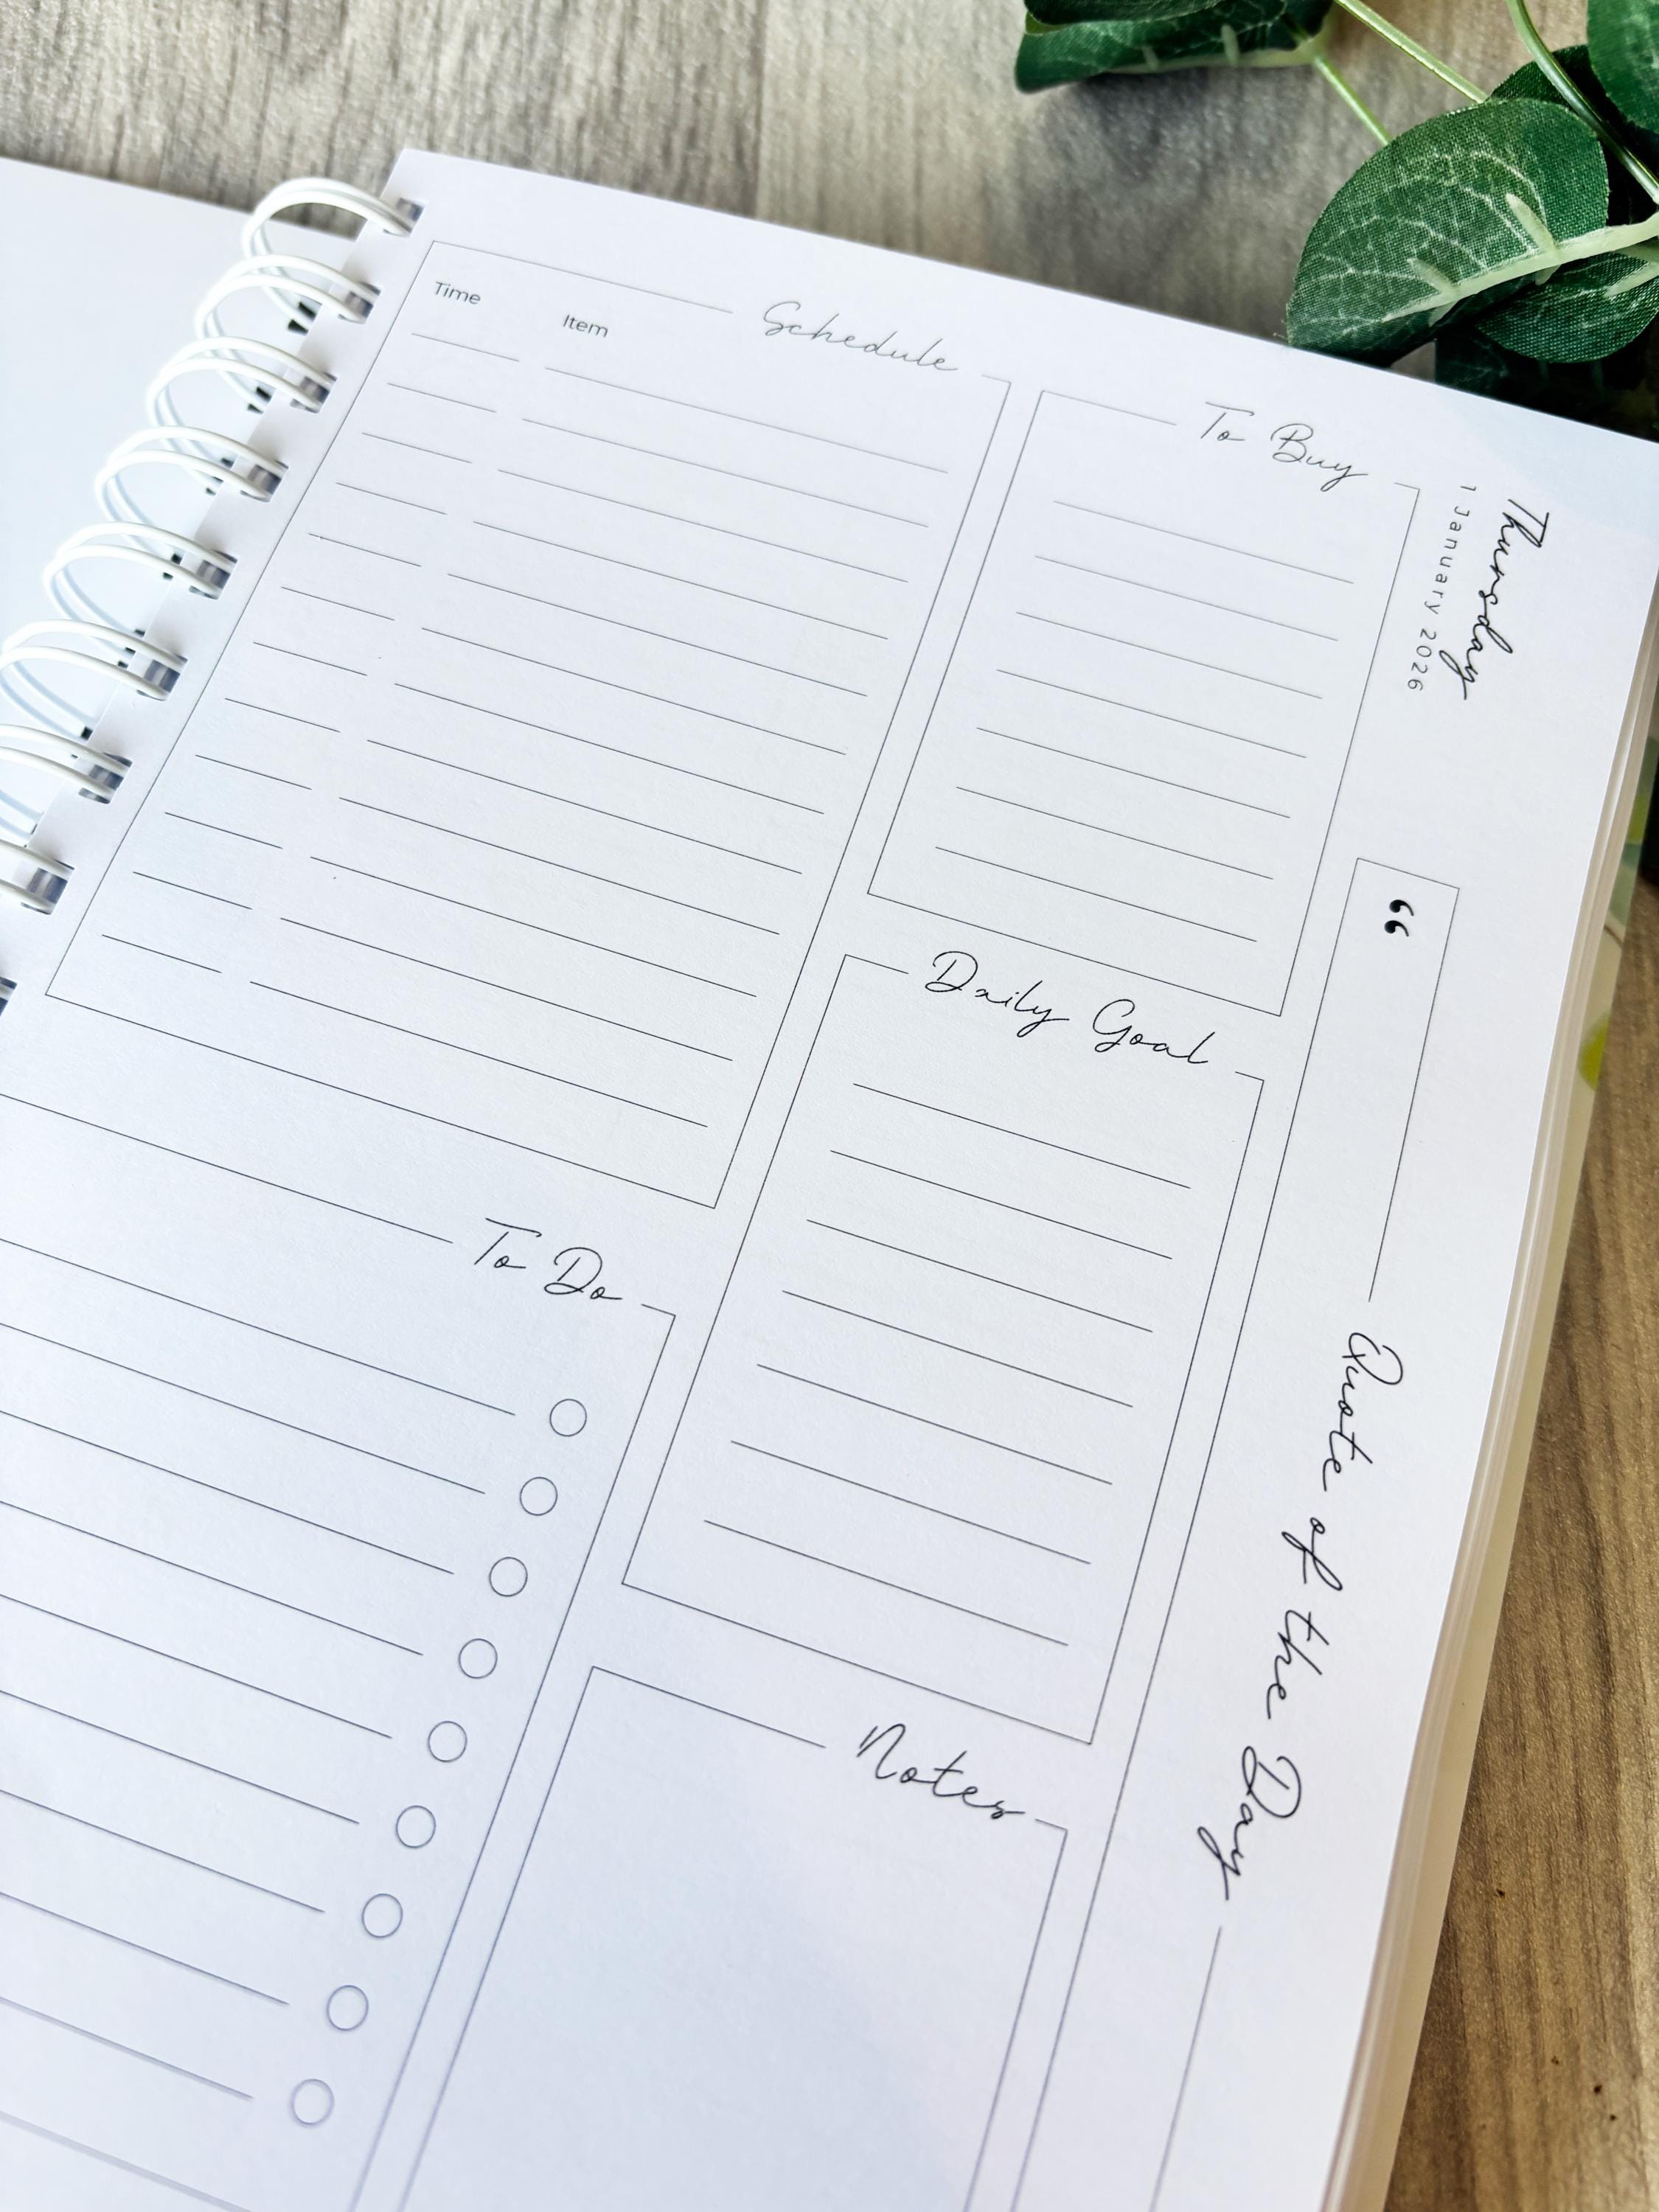 Thursday
1 January 2026
“
Quote of the Day
Schedule
Time Item
To Buy
Daily Goal
To Do
Notes